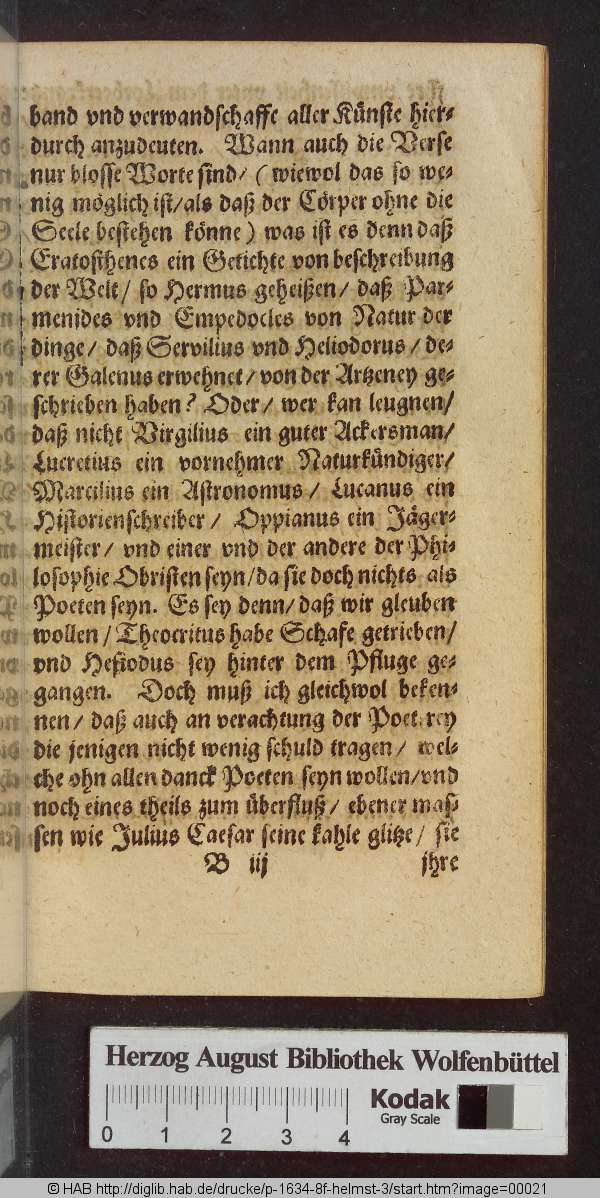 band vnd verwandschaffe aller Künste hier-
durch anzudeuten. Wann auch die Verse
nur blosse Worte sind/ (wiewol das so we-
nig möglich ist/als daß der Cörper ohne die
Seele bestehen könne) was ist es denn daß
Eratosthenes ein Getichte von beschreibung
der Welt/ so Hermus geheißen/ daß Par-
menides vnd Empedocles von Natur der
dinge/ daß Servilius vnd Heliodorus/ de-
rer Galenus erwehnet/ von der Artzeney ge-
schrieben haben? Oder/ wer kan leugnen/
daß nicht Virgilius ein guter Ackersman/
Lucretius ein vornehmer Naturkündiger/
Marcilius ein Astronomus/ Lucanus ein
Historienschreiber/ Oppianus ein Jäger-
meister/ vnd einer vnd der andere der Phi-
losophie Obristen seyn/da sie doch nichts als
Poeten seyn. Es sey denn/ daß wir gleuben
wollen/ Theocritus habe Schafe getrieben/
vnd Hesiodus sey hinter dem Pfluge ge-
gangen. Doch muß ich gleichwol beken-
nen/ daß auch an verachtung der Poeterey
die jenigen nicht wenig schuld tragen/ wel-
che ohn allen danck Poeten seyn wollen/vnd
noch eines theils zum überfluß/ ebener mas-
sen wie Julius Caesar seine kahle glitze/ sie
B iij jhre
Herzog August Bibliothek Wolfenbüttel
Kodak
Gray Scale
0 1 2 3 4
© HAB http://diglib.hab.de/drucke/p-1634-8f-helmst-3/start.htm?image=00021